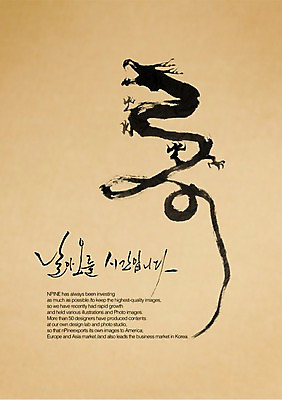 날아오를 시간입니다
NPINE has always been investing
as much as possible /to keep the highest-quality images.
so we have recently had rapid growth
and held various illustrations and Photo images.
More than 50 designers have produced contents
at our own design lab and photo studio,
so that nPineexports its own images to America,
Europe and Asia market /and also leads the business market in Korea.